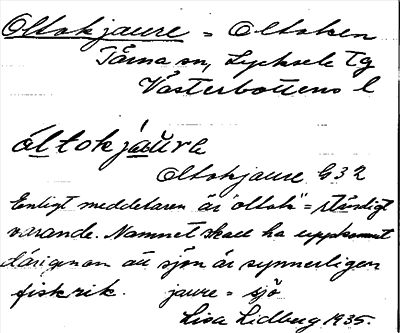 Oltokjaure = Oltoken
Tärna sn, Lycksele Tg
Västerbottens l
óltokjáu̯rɛ
Oltokjaure G 32
Enligt meddelaren är "oltok" = ständigt
varande. Namnet skall ha uppkommit
därigenom att sjön är synnerligen
fiskrik. jaure = sjö
Lisa Lidberg 1935.